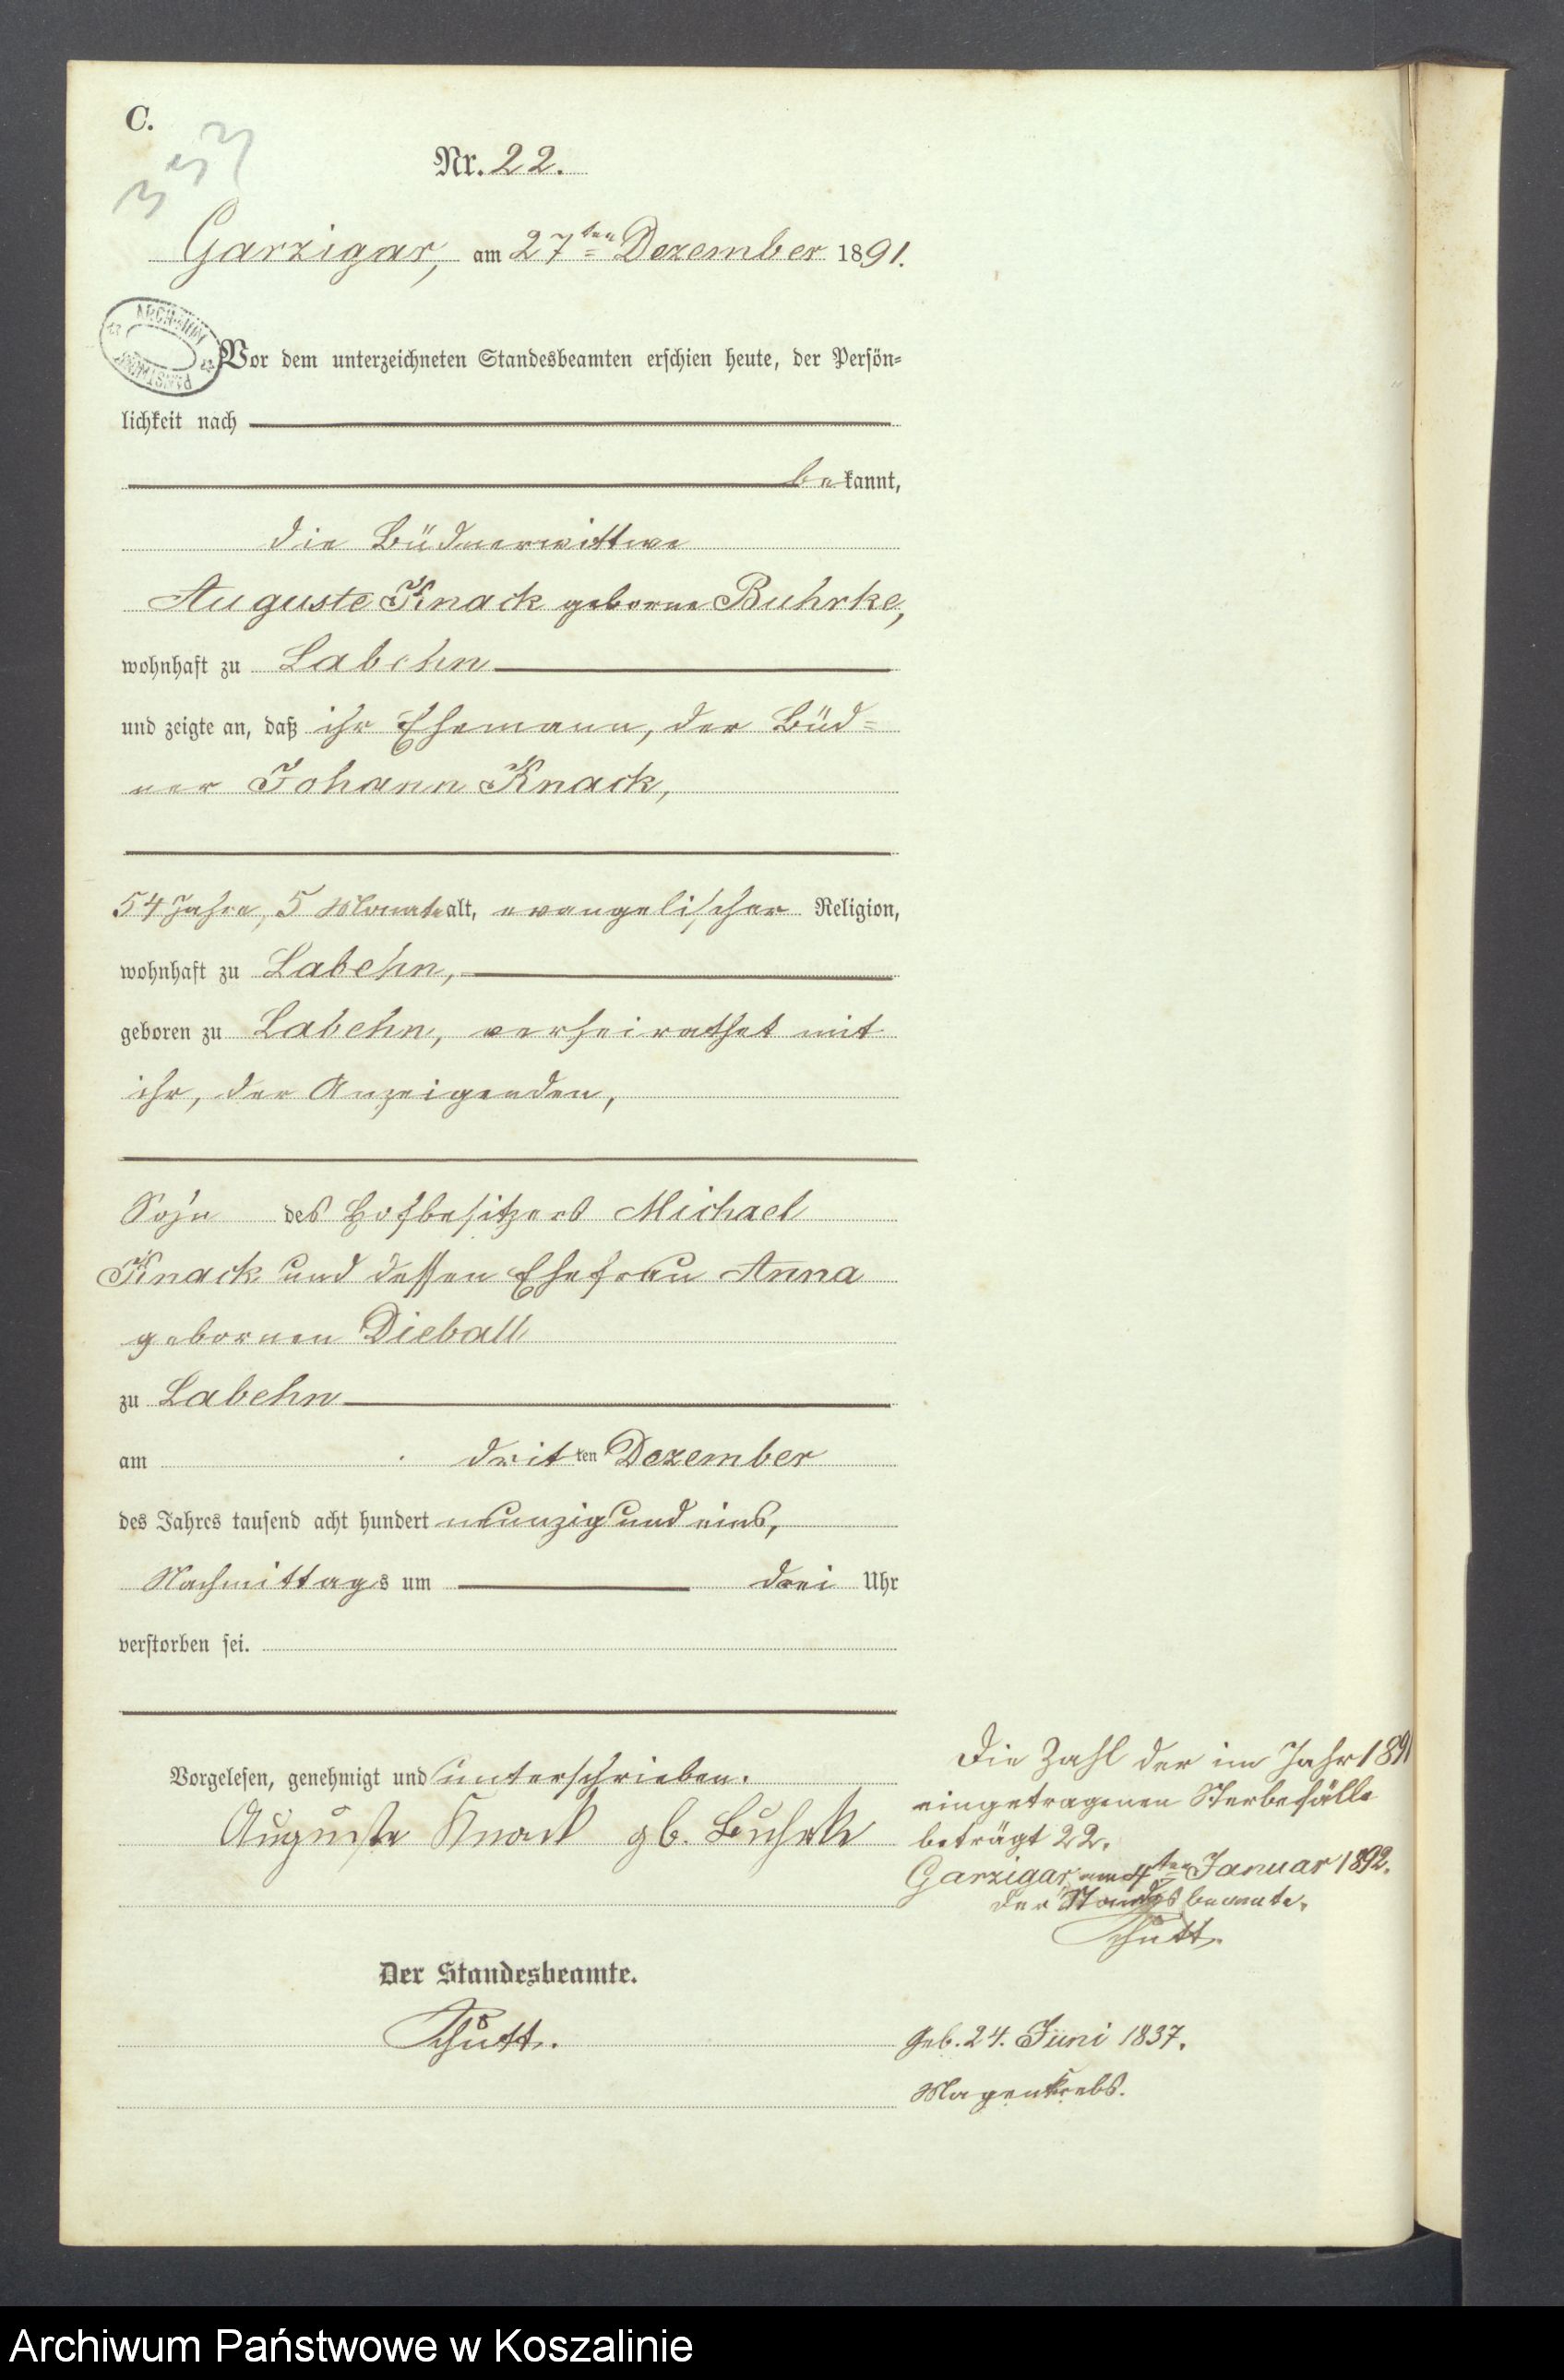 C.
Nr. 22.
Garzigar, am 27ten Dezember 1891.
Vor dem unterzeichneten Standesbeamten erschien heute, der Persön=
lichkeit nach
bekannt,
die Büdnerwittwe
Auguste Knack geborne Buhrke,
wohnhaft zu Labehn
und zeigte an, daß ihr Ehemann, der Büd=
ner Johann Knack,
54 Jahre, 5 Monate alt, evangelischer Religion,
wohnhaft zu Labehn,
geboren zu Labehn, verheirathet mit
ihr, der Anzeigenden,
Sohn des Hofbesitzers Michael
Knack und dessen Ehefrau Anna
gebornen Dieball
zu Labehn
am dritten Dezember
des Jahres tausend acht hundert neunzig und eins,
Nachmittags um drei Uhr
verstorben sei.
Vorgelesen, genehmigt und unterschrieben.
Auguste Knack gb. Buhrke
Der Standesbeamte.
Schütt.
Die Zahl der im Jahr 1891
eingetragenen Sterbefälle
beträgt 22.
Garzigar, am 4ten Januar 1892.
Der Standesbeamte.
Schütt.
Geb. 24. Juni 1837.
Magenkrebs.
Archiwum Państwowe w Koszalinie